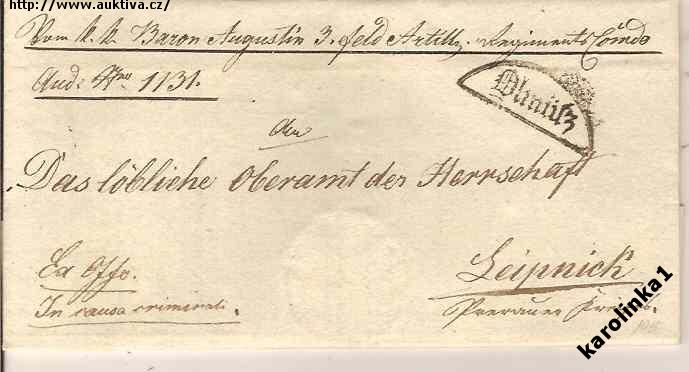 http://www.auktiva.cz/
Vom k. k. Baron Augustin 3. Feld Artill. Regiments Comdo
Aud: Nro 1131.
Olmütz
An
Das löbliche Oberamt der Herrschaft
Leipnick
Prerauer Kreises.
Ex Offo.
In causa criminali.
karolinka1